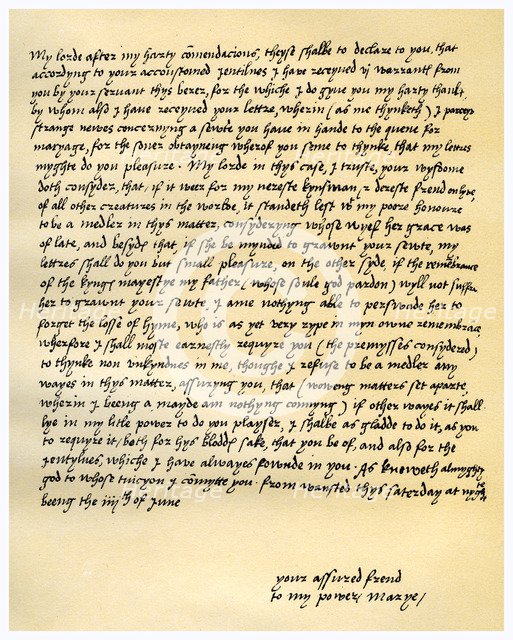 My lorde after my harty comendacions, theyse shalbe to declare to you, that
accordyng to your accoustomed Jentilnes I have receyued vj warrantt from
you by your servant thys berer, for the whiche I do gyue you my harty thankes
by whom also I have receyued your lettre, wherin (as me thynketh) I parceyve
strange newes concernyng a sewte you have in hande to the quene for
maryage, for the soner obtaynyng wherof you seme to thynke, that my lettres
myghte do you pleasure. My lorde in thys case, I truste, your wysdome
doth consyder, that if it wer for my nereste kynsman, & dereste frend on lyve,
of all other creatures in the worlde, it standeth lest wt my poore honoure
to be a medler in thys matter, consyderyng whose wyef her grace was
of late, and besydes that if she be mynded to grawnt your sewte, my
lettres shall do you but small pleasure, on the other syde, if the remembrance
of the kyngs mayestye my father (whose soule god pardon) wyll not suffre
her to grawnt your sewte, I ame nothyng able to perswade her to
forget the losse of hyme, who is as yet very rype in myn owne remembrace,
wherfore I shall moste earnestly requyre you (the premysses consydered)
to thynke non unkyndnes in me, thoughe I refuse to be a medler any
wayes in thys matter, assuryng you, that (wowyng matters set aparte,
wherin I beeng a mayde am nothyng connyng) if other wayes it shall
lye in my litle power to do you playser, I shalbe as gladde to do it, as you
to requyre it, both for hys bloddes sake, that you be of, and also for the
Jentylnes, whiche I have alwayes fownde in you. As knoweth almyghty
god to whose tuicyon I comytte you. From wansted thys saterday at nyghte
beeng the iiijth of June
your assured frend
to my power, Marye/
Heritage
Heritage
Heritage
Heritage